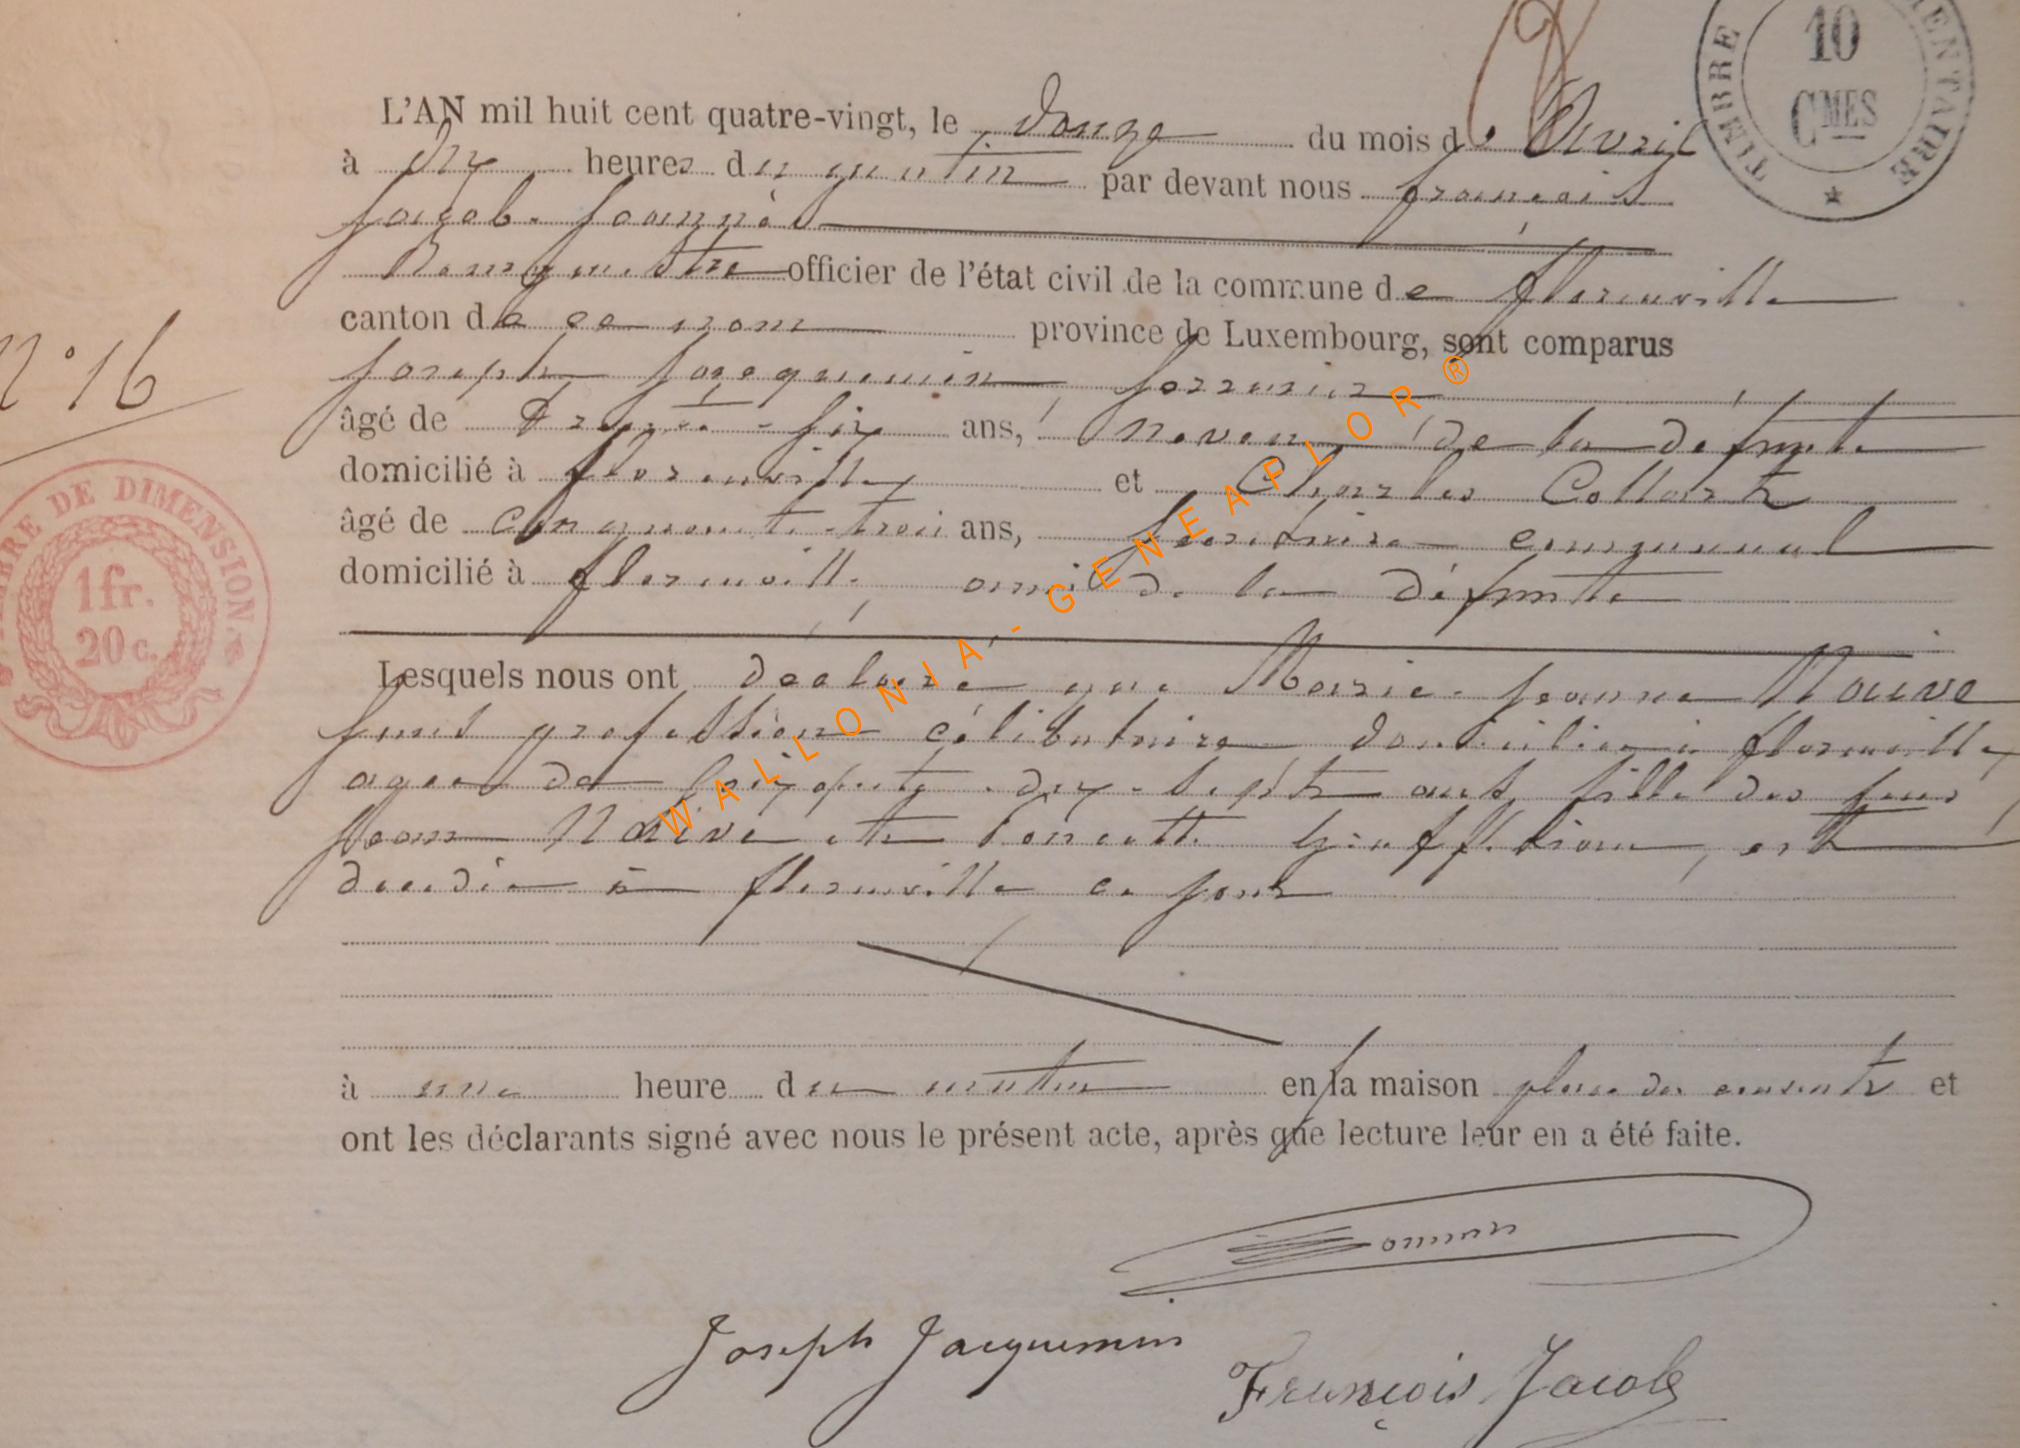 TIMBRE 10 CMES
L'AN mil huit cent quatre-vingt, le douze du mois d'Avril
à dix heures du matin par devant nous françois
Jacob-Joannès
Bourgmestre officier de l'état civil de la commune de florenville
canton de ce nom province de Luxembourg, sont comparus
N° 16
Joseph Jacquemin,
âgé de trente-six ans, neveu de la défunte
domicilié à florenville et Charles Collart
âgé de cinquante-trois ans, Secrétaire communal
domicilié à florenville, ami de la défunte
TIMBRE DE DIMENSION.
1 fr.
20 c.
Lesquels nous ont déclaré que Marie-Jeanne Naive
sans profession célibataire, domiciliée à florenville,
agée de soixante-dix-sept ans, fille des feus
Jean Naive et Poncette, est
décédée à florenville ce jour
à une heure du matin en la maison place du couvent et
ont les déclarants signé avec nous le présent acte, après que lecture leur en a été faite.
Joseph Jacquemin
François Jacob
WALLONIA - GENEAFLOR ®